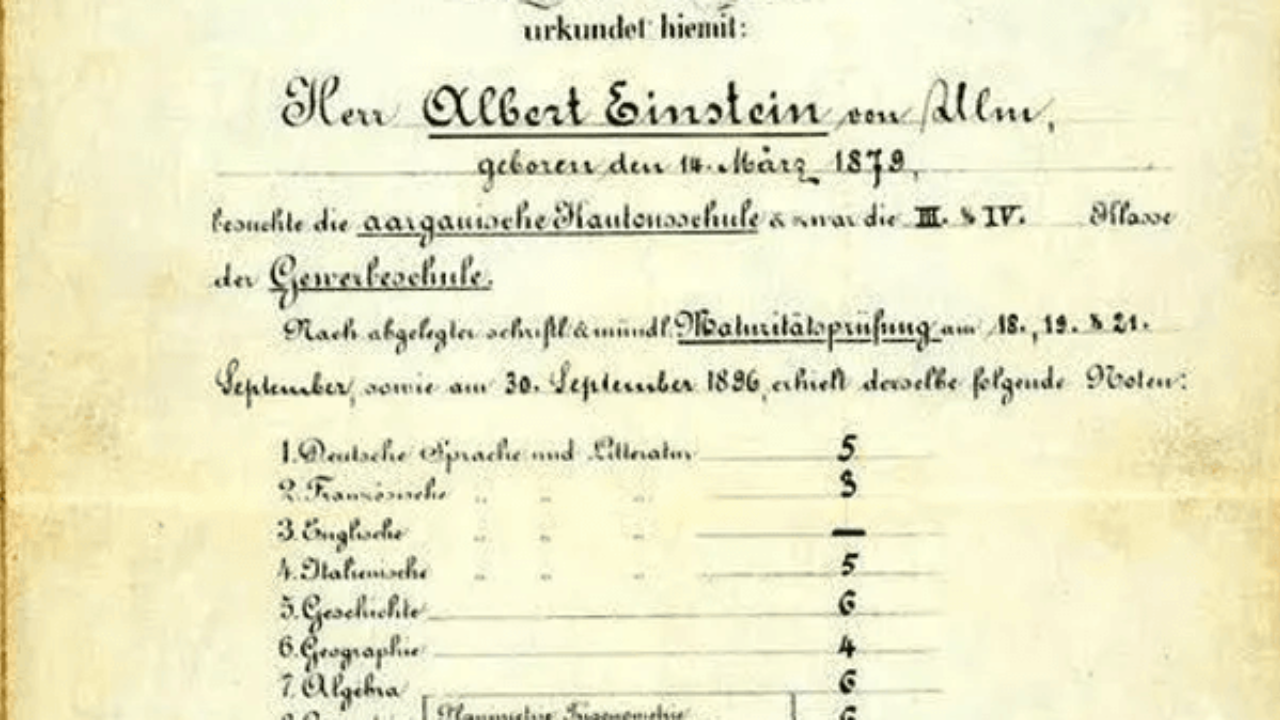 urkundet hiemit:
Herr Albert Einstein von Ulm,
geboren den 14. März 1879,
besuchte die aargauische Kantonsschule & zwar die III. & IV. Klasse
der Gewerbeschule.
Nach abgelegter schriftl. & mündl. Maturitätsprüfung am 18., 19. & 21.
September, sowie am 30. September 1896, erhielt derselbe folgende Noten:
1. Deutsche Sprache und Litteratur 5
2. Französische " " " 3
3. Englische " " " —
4. Italienische " " " 5
5. Geschichte 6
6. Geographie 4
7. Algebra 6
Planimetrie, Trigonometrie 6